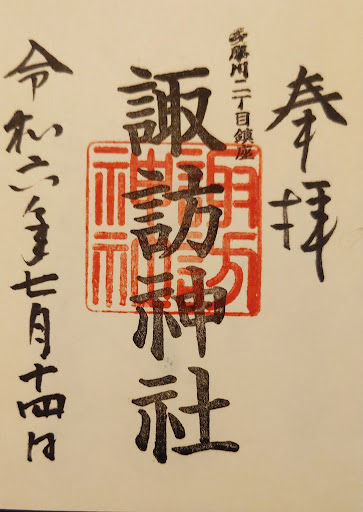 奉拝
多摩川二丁目鎮座
諏訪神社
諏訪
神社
令和六年七月十四日